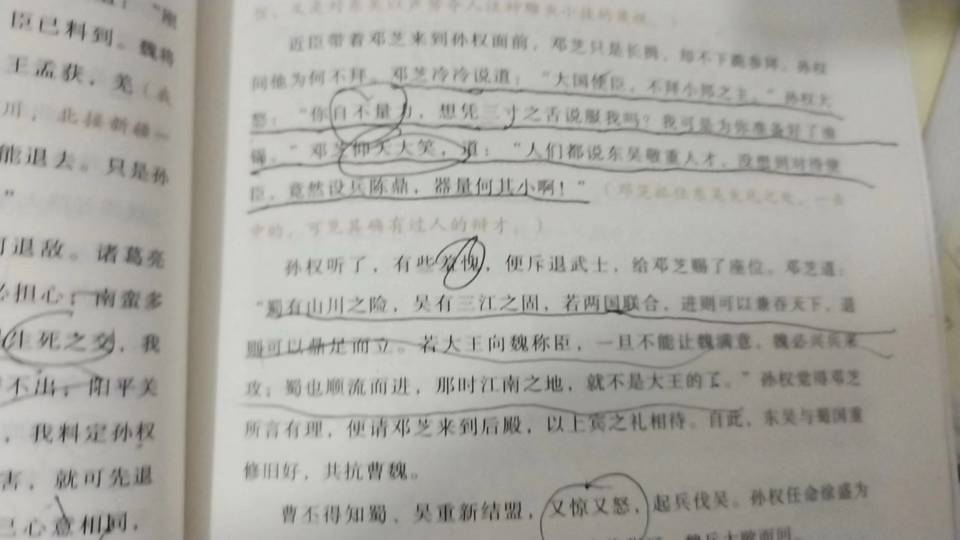 臣已料到。魏将
王孟获，羌（
川，北接新疆一
能退去。只是孙
”
可退敌。诸葛亮
必担心；南蛮多
生死之交，我
不出；阳平关
，我料定孙权
害，就可先退
己心意相同，
近臣带着邓芝来到孙权面前，邓芝只是长揖，却不下跪参拜。孙权
问他为何不拜。邓芝冷冷说道：“大国使臣，不拜小邦之主。”孙权大
怒：“你自不量力，想凭三寸之舌说服我吗？我可是为你准备好了
。”邓芝仰天大笑，道：“人们都说东吴敬重人才，没想到对待
臣，竟然设兵陈鼎，器量何其小啊！”（邓芝抓住东吴失礼之处，一
中的，可见其确有过人的辩才。）
孙权听了，有些羞愧，便斥退武士，给邓芝赐了座位。邓芝道：
“蜀有山川之险，吴有三江之固，若两国联合，进则可以兼吞天下，退
则可以鼎足而立。若大王向魏称臣，一旦不能让魏满意，魏必兴兵来
攻；蜀也顺流而进，那时江南之地，就不是大王的了。”孙权觉得邓芝
所言有理，便请邓芝来到后殿，以上宾之礼相待。自此，东吴与蜀国重
修旧好，共抗曹魏。
曹丕得知蜀、吴重新结盟，又惊又怒，起兵伐吴。孙权任命徐盛为
魏兵大败而回。